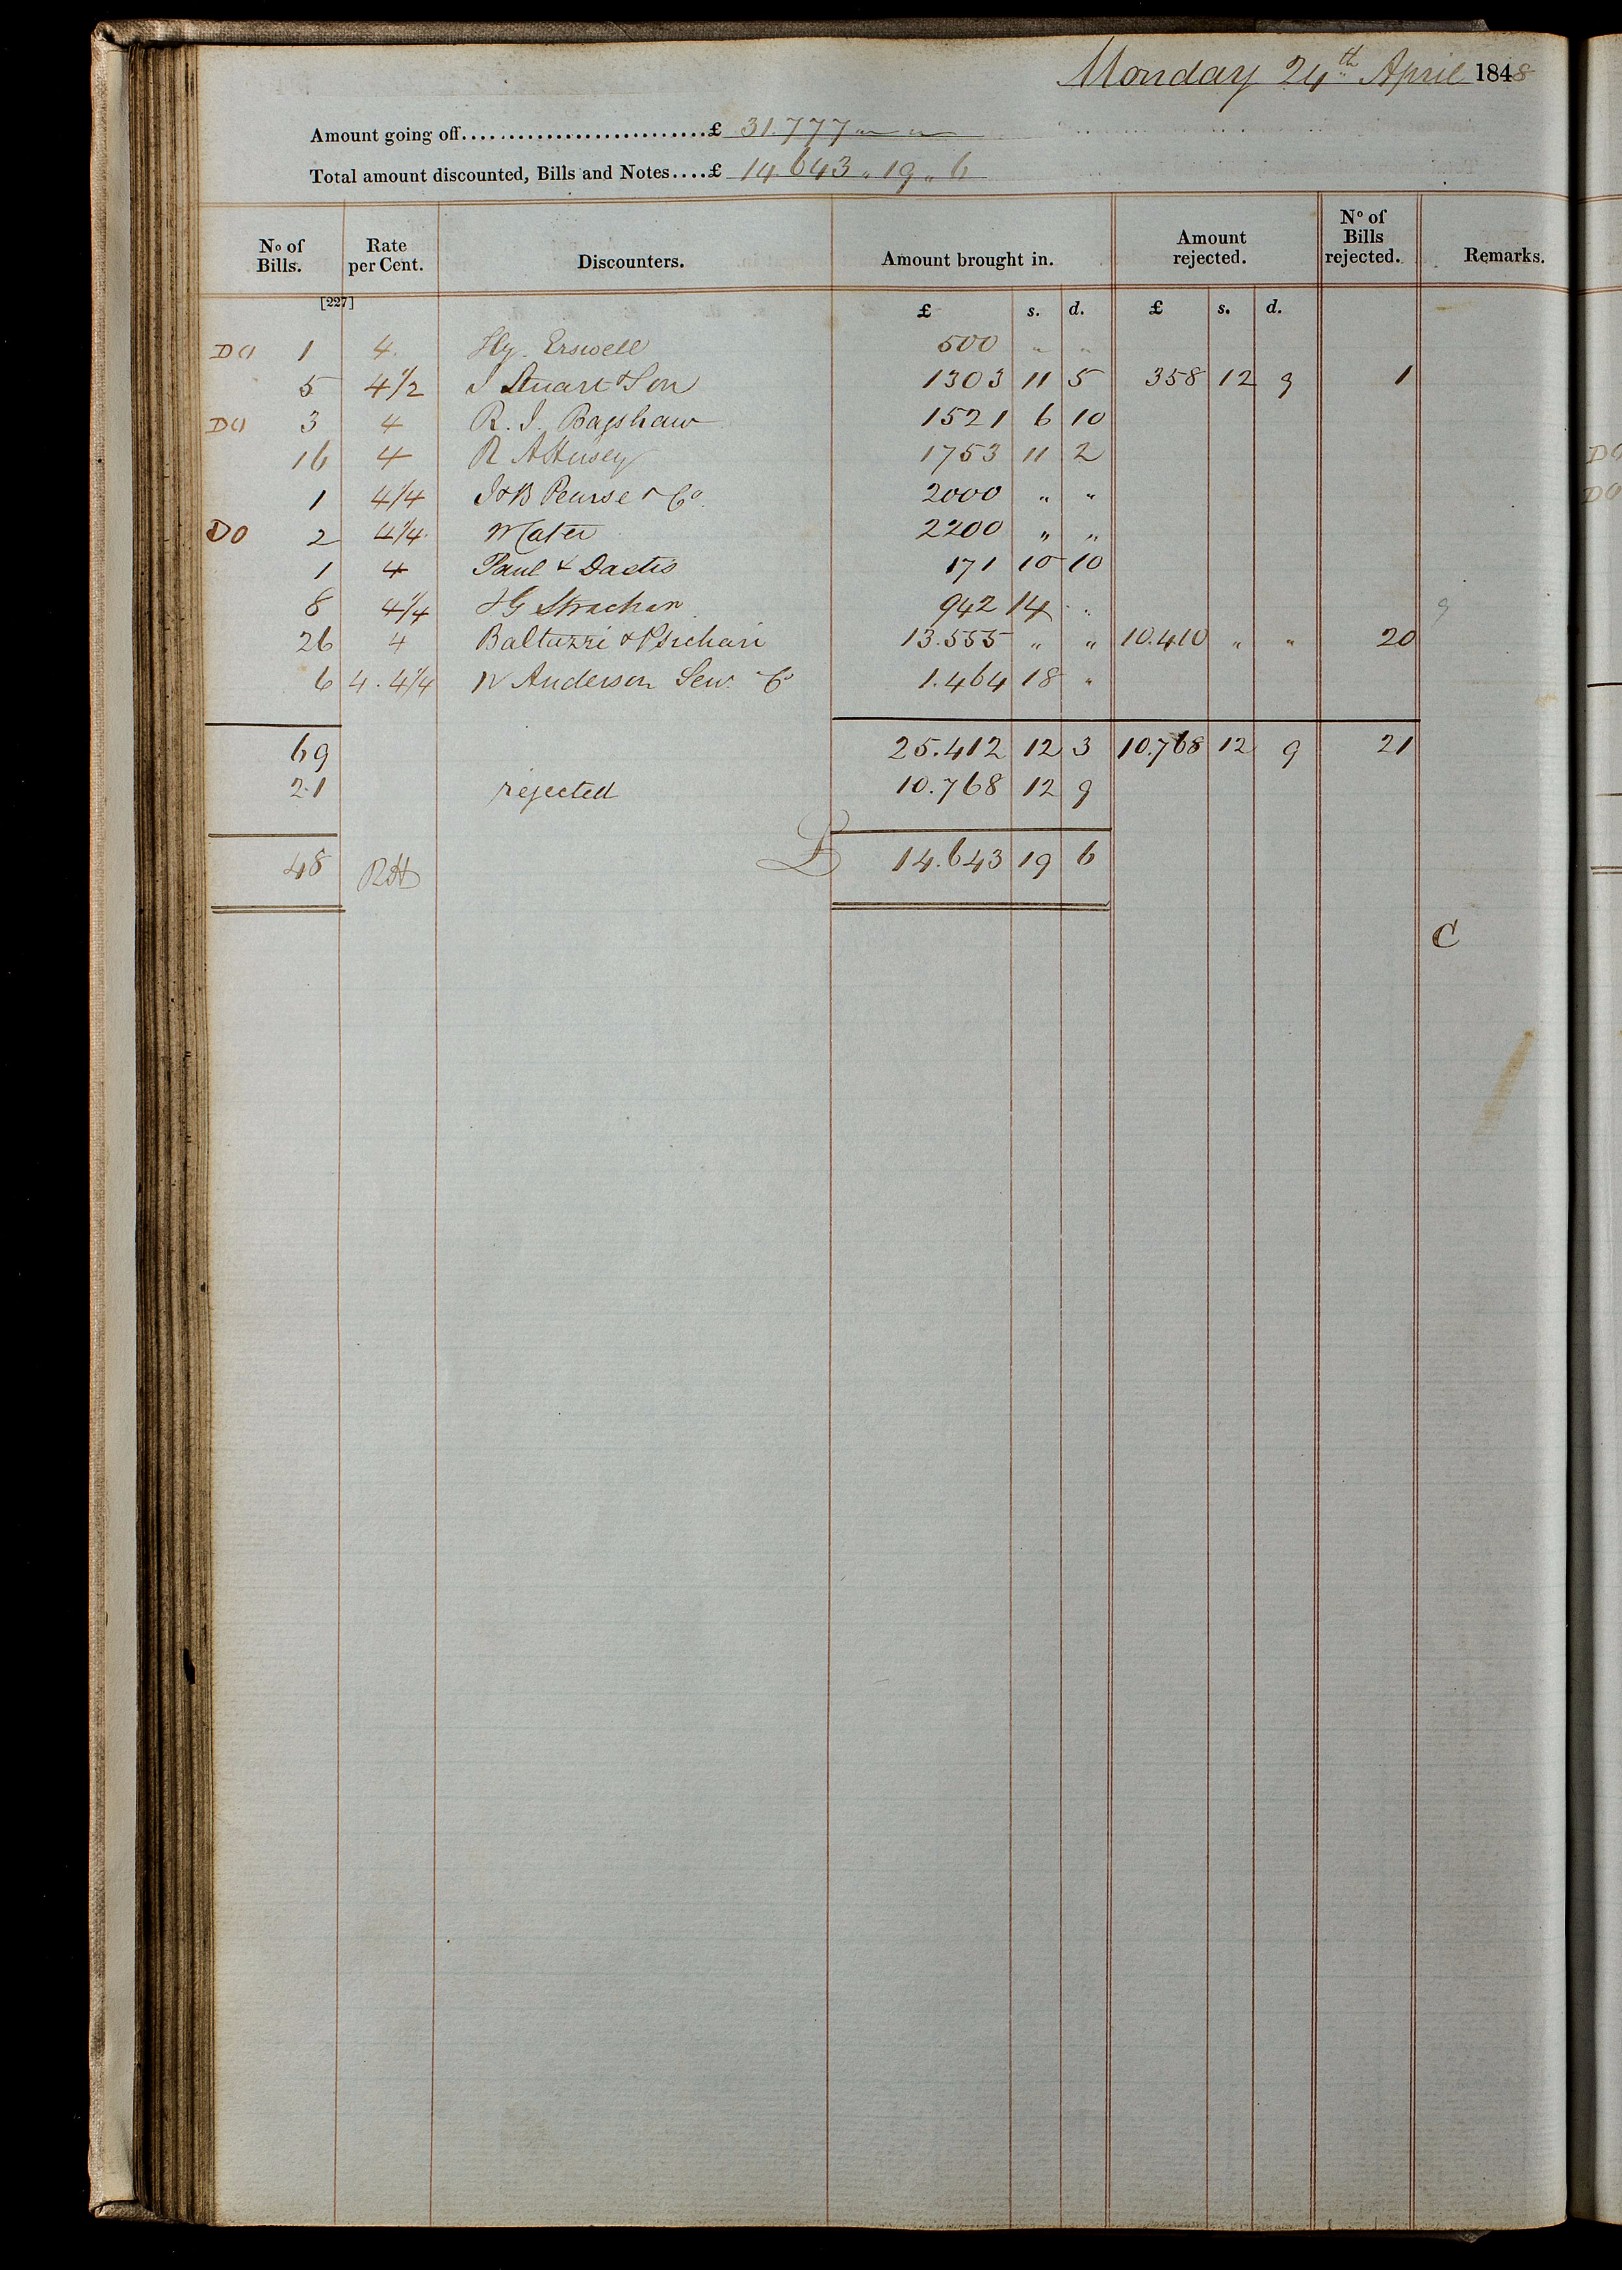 Monday 24th April 1848
Amount going off.........................£ 31.777 " "
Total amount discounted, Bills and Notes....£ 14.643 " 19 " 6
No of Bills. Rate per Cent. Discounters. Amount brought in. Amount rejected. No of Bills rejected. Remarks.
[227] £ s. d. £ s. d.
DO 1 4 Hy. Erswell 500 " "
5 4½ J Stuart & Son 1303 11 5 358 12 9 1
DO 3 4 R. J. Bagshaw 1521 6 10
16 4 R A 1753 11 2
1 4¼ J & B Pearse & Co 2000 " "
DO 2 4¼ 2200 " "
1 4 Paul & 171 10 10
8 4¼ J G Strachan 942 14 "
26 4 Baltazzi & Psichari 13.555 " " 10.410 " " 20
6 4. 4¼ W Anderson Sen. & Co 1.464 18 "
69 25.412 12 3 10.768 12 9 21
21 rejected 10.768 12 9
48 RH £ 14.643 19 6
C